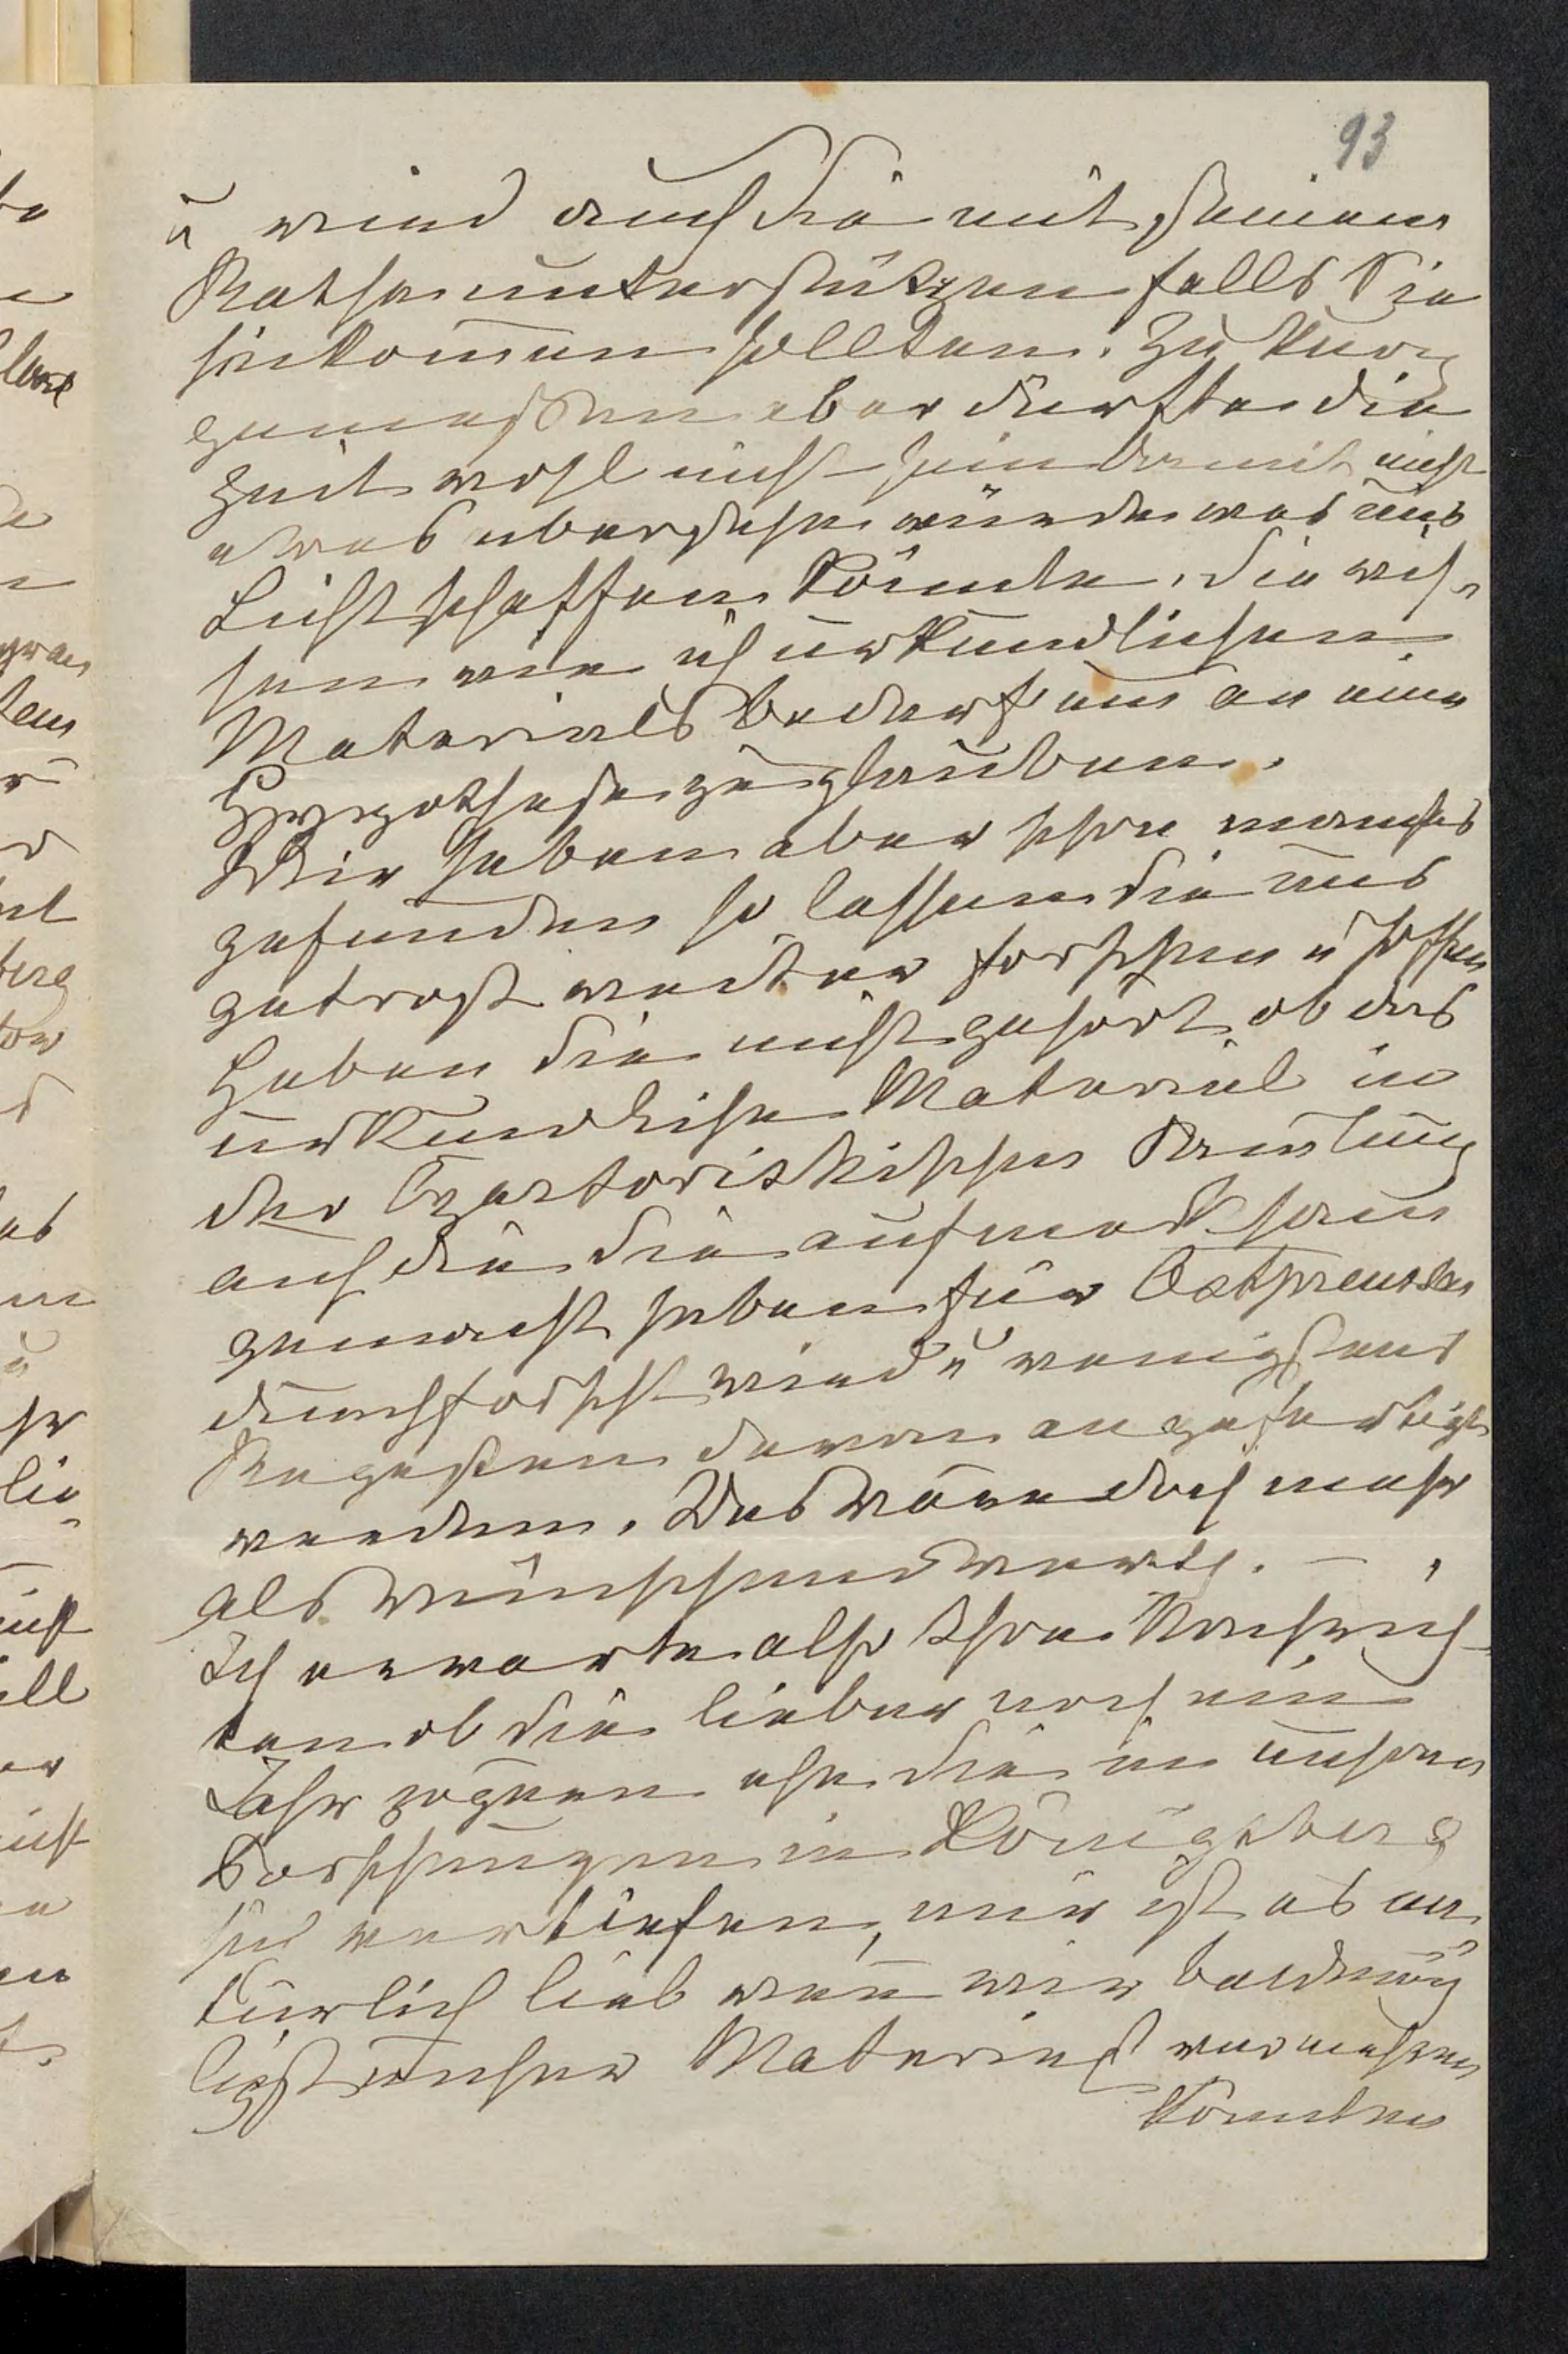 93
u wird auch Sie mit seinem
Rathe unterstützen falls Sie
hinkommen sollten. Zu kurz
gemessen aber dürfte die
Zeit wohl nicht sein damit nicht
etwas übersehen würde was uns
Licht schaffen könnte. Sie wis¬
sen wie ich urkundlichen
Materials bedarf um an eine
Hypothese zu glauben.
Wir haben aber schon manches
gefunden so lassen Sie uns
getrost weiter forschen u hoffen
Haben Sie nicht gehört ob das
urkundliche Material in
der Czartoriskischen Samlung
auf die Sie aufmerksam
gemacht haben für Ostpreussen
durchforscht wird u wenigstens
Regesten davon angefertigt
werden. Das wäre doch mehr
als wünschenswerth. –
Ich erwarte also Ihre Nachrich-
ten ob Sie lieber noch ein
Jahr zögern ehe Sie in unseren
Forschungen in Königsberg
sich vertiefen, mir ist es na
türlich lieb wenn wir baldmög
ligst unser Material vermehren
könnten